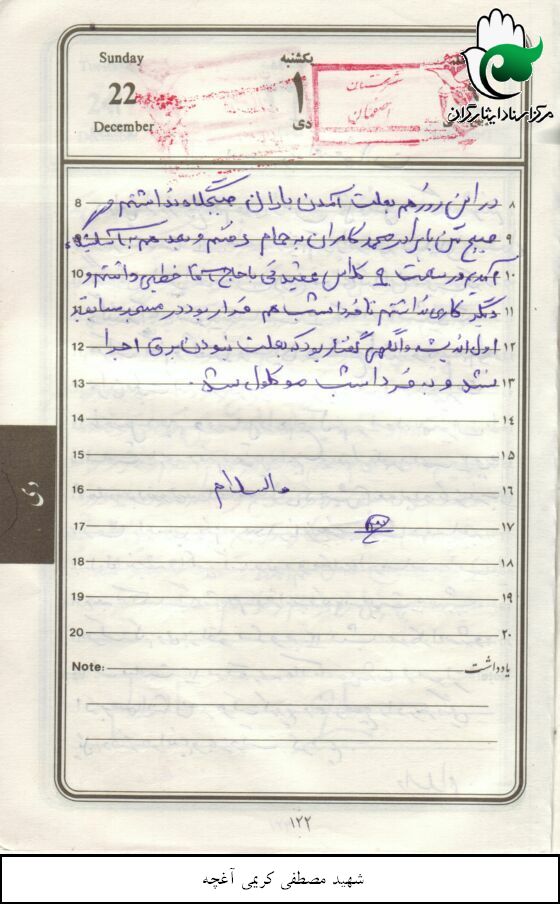 Sunday
22
December
یکشنبه
۱
دی
شهرستان
اصفهان
مرکز اسناد ایثارگران
8 در این روز هم بعلت آمدن باران صبحگاه نداشتیم و ۸
9 صبح من با برادر محمد کامران به حمام رفتیم و بعد هم به آسایشگاه ۹
10 آمدیم در ساعت ۹ کلاس عقیدتی با حاج خطیبی داشتیم و ۱۰
11 دیگر کاری نداشتیم تا فردا شب هم قرار بود در مسجد مسابقه ۱۱
12 اول اندیشه و آگهی گفتار بود که بعلت نبودن برق اجرا ۱۲
13 نشد و به فردا شب موکول شد. ۱۳
14 ۱۴
15 ۱۵
16 والسلام ۱۶
17 ۱۷
18 ۱۸
19 ۱۹
20 ۲۰
Note: یادداشت
دی
۱۲۲
شهید مصطفی کریمی آغچه